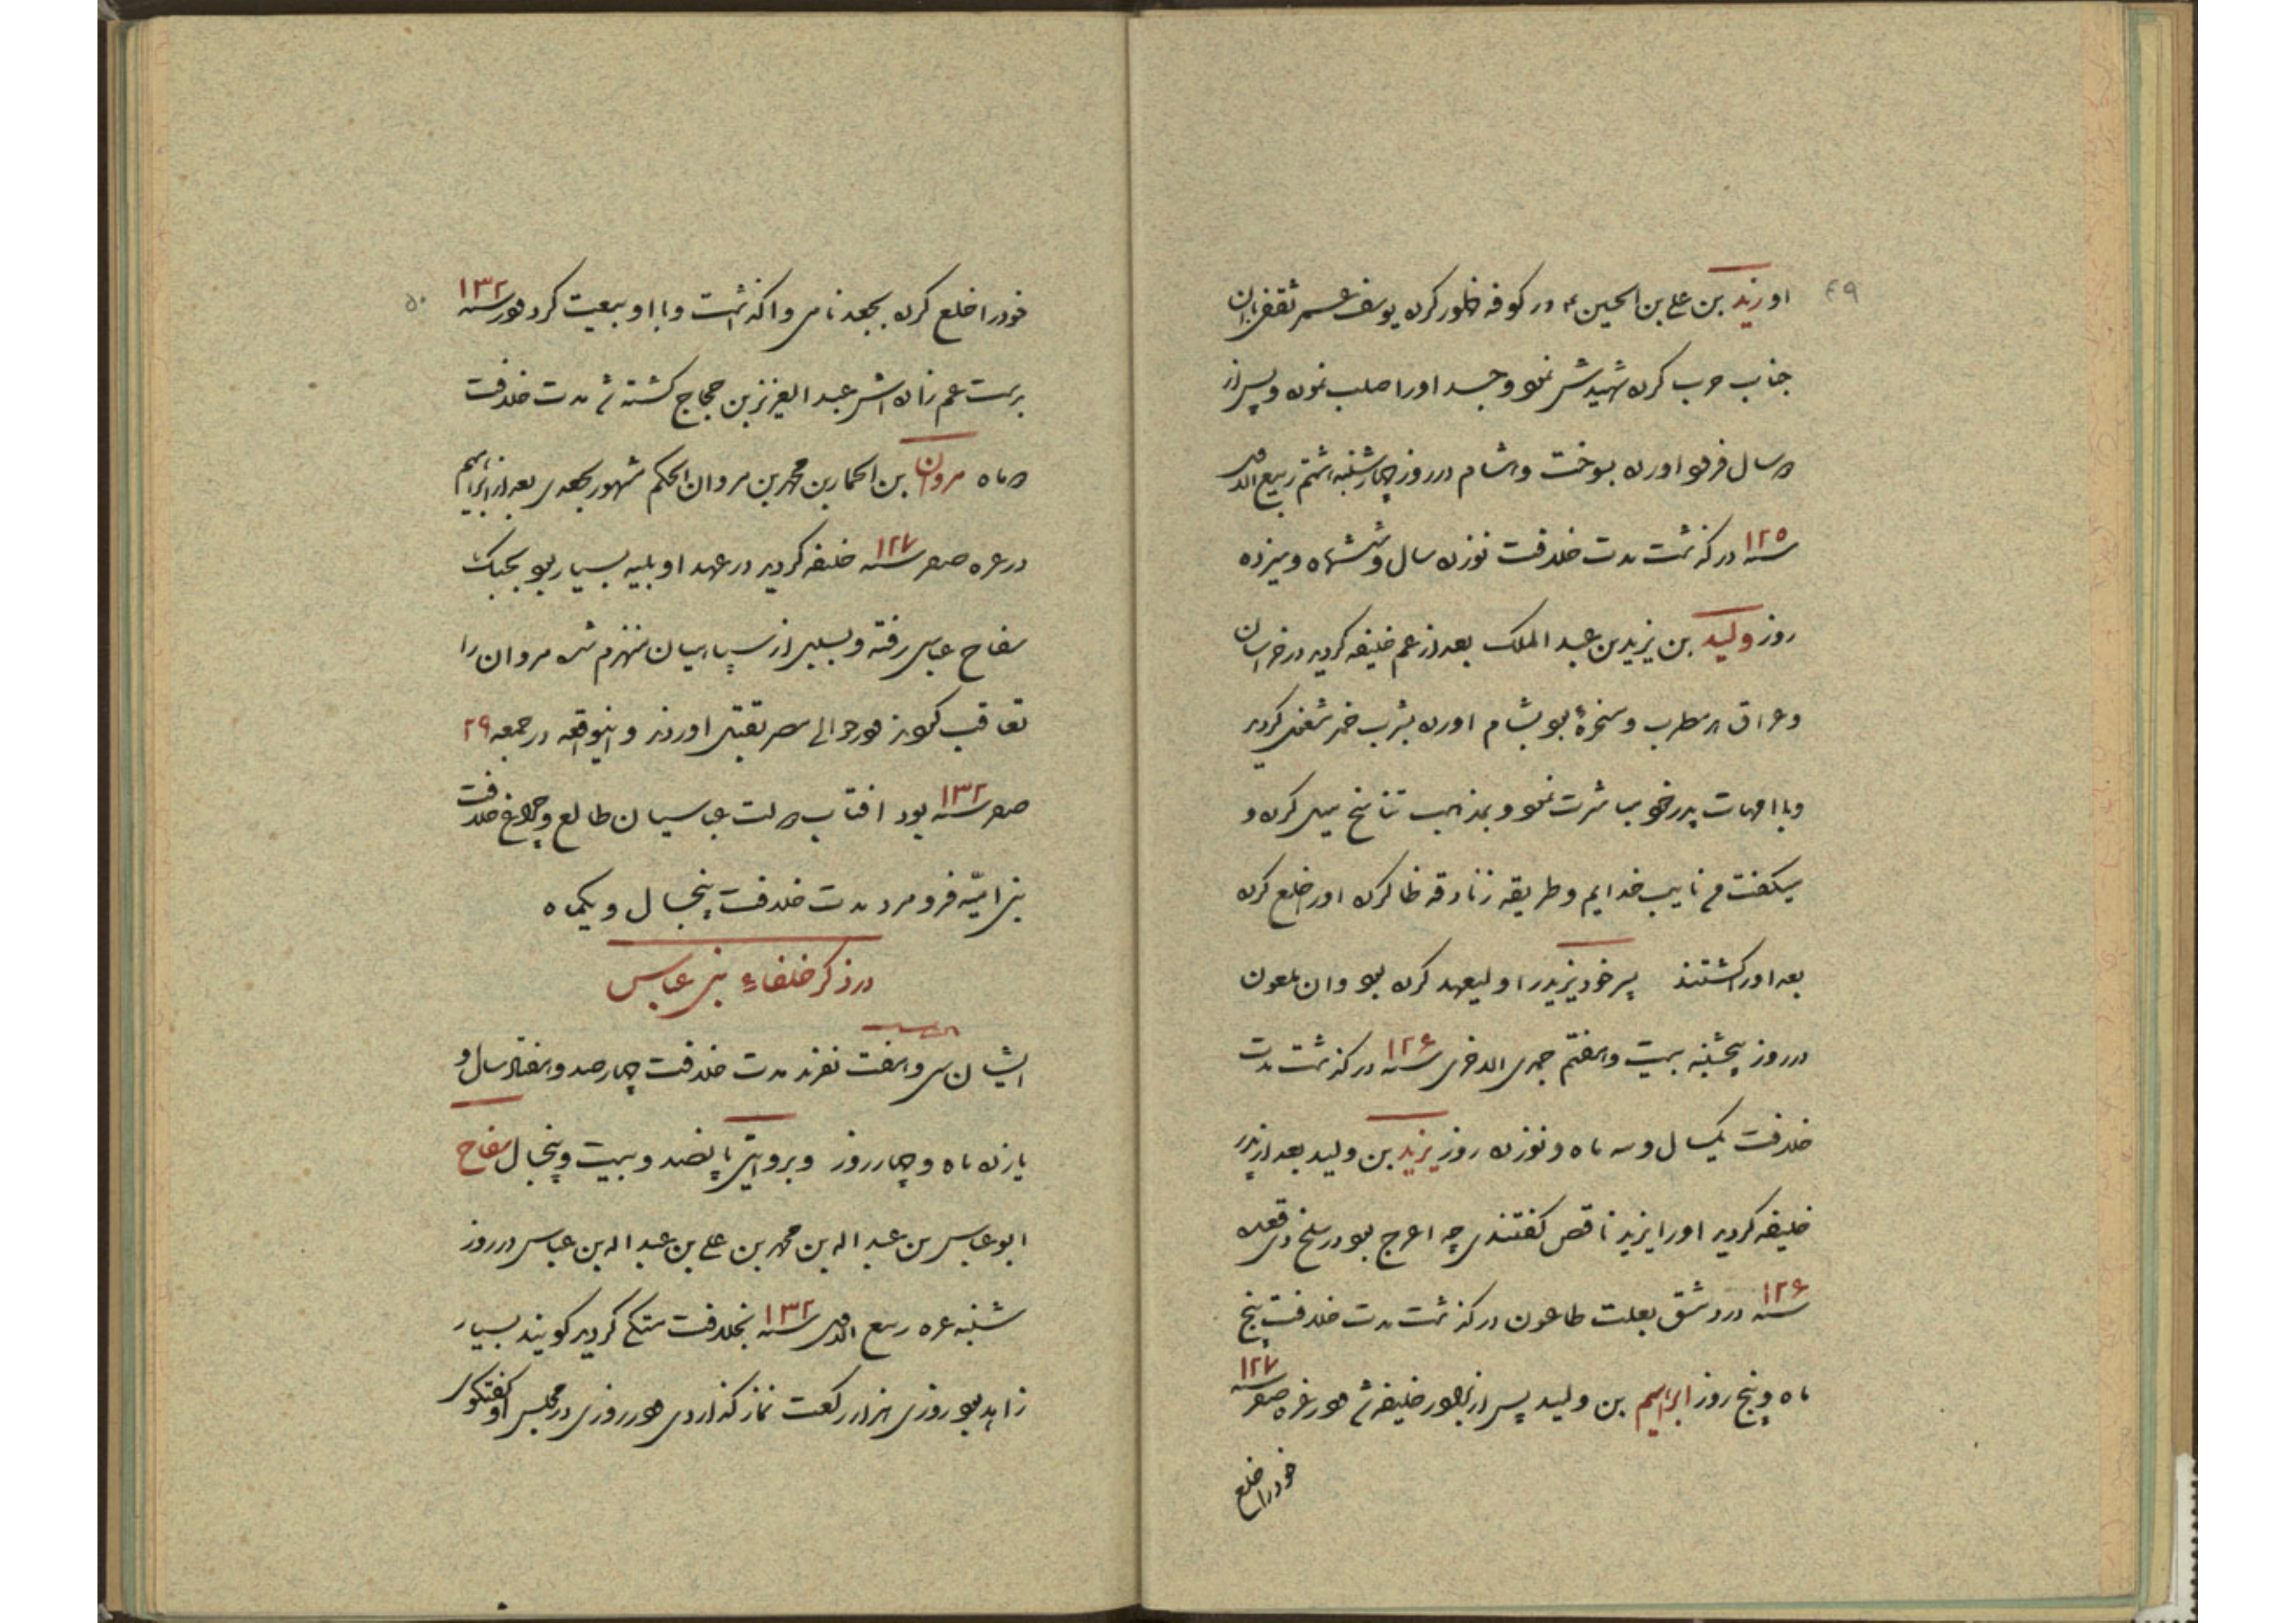 ۴۹
او زید بن علی بن الحسین ع در کوفه ظهور کرده یوسف عمر ثقفی بان
جناب حرب کرده شهیدش نمود و جسد اورا صلب نموده و پس از
دو سال فرود اورده بسوخت و هشام در روز چهارشنبه هشتم ربیع الاول
سنه ۱۲۵ درگذشت مدت خلافت نوزده سال و ششماه و سیزده
روز ولید بن یزید بن عبد الملک بعد از عم خلیفه گردید در خراسان
و عراق هر مطرب و مسخرهٔ بود بشام اورده بشرب خمر مشغول گردید
و با امهات پدر خود مباشرت نمود و بمذهب تناسخ میل کرده و
میگفت من نایب خدایم و طریقه زنادقه ظاهر کرده اورا خلع کرده
بعد اورا کشتند پسر خود یزید را ولیعهد کرده بود و ان ملعون
در روز پنجشنبه بیست و هفتم جمادی الاخری سنه ۱۲۶ درگذشت مدت
خلافت یکسال و سه ماه و نوزده روز یزید بن ولید بعد از پدر
خلیفه گردید اورا یزید ناقص گفتندی چه اعرج بود در سلخ ذی قعده
سنه ۱۲۶ در دمشق بعلت طاعون درگذشت مدت خلافت پنج
ماه و پنج روز ابراهیم بن ولید پس از برادر خلیفه شد در غره صفر سنه ۱۲۷
خود را خلع
۵۰
خود را خلع کرده بجعد نامی واگذاشت و با او بیعت کرد در سنه ۱۳۲
بدست عم زاده اش عبد العزیز بن حجاج کشته شد مدت خلافت
دو ماه مروان بن الحمار بن محمد بن مروان الحکم مشهور بجعدی بعد از ابراهیم
در غره صفر سنه ۱۲۷ خلیفه گردید در عهد او بلیه بسیار بود بجنگ
سفاح عباسی رفته و بسیاری از سپاهیان منهزم شد مروان را
تعاقب کردند در حوالی مصر بقتل اوردند و اینواقعه در جمعه ۲۹
صفر سنه ۱۳۲ بود افتاب دولت عباسیان طالع و چراغ خلافت
بنی امیّه فرو مرد مدت خلافت پنجسال و یکماه
در ذکر خلفاء بنی عباس
ایشان سی و هفت نفرند مدت خلافت چهار صد و هفتاد سال و
یازده ماه و چهار روز و بروایتی پانصد و بیست و پنجسال سفاح
ابو عباس بن عبد اله بن محمد بن علی بن عبد اله بن عباس در روز
شنبه غره ربیع الاول سنه ۱۳۲ بخلافت متکی گردید گویند بسیار
زاهد بود روزی هزار رکعت نماز گذاردی در روزی در مجلس او گفتگوی